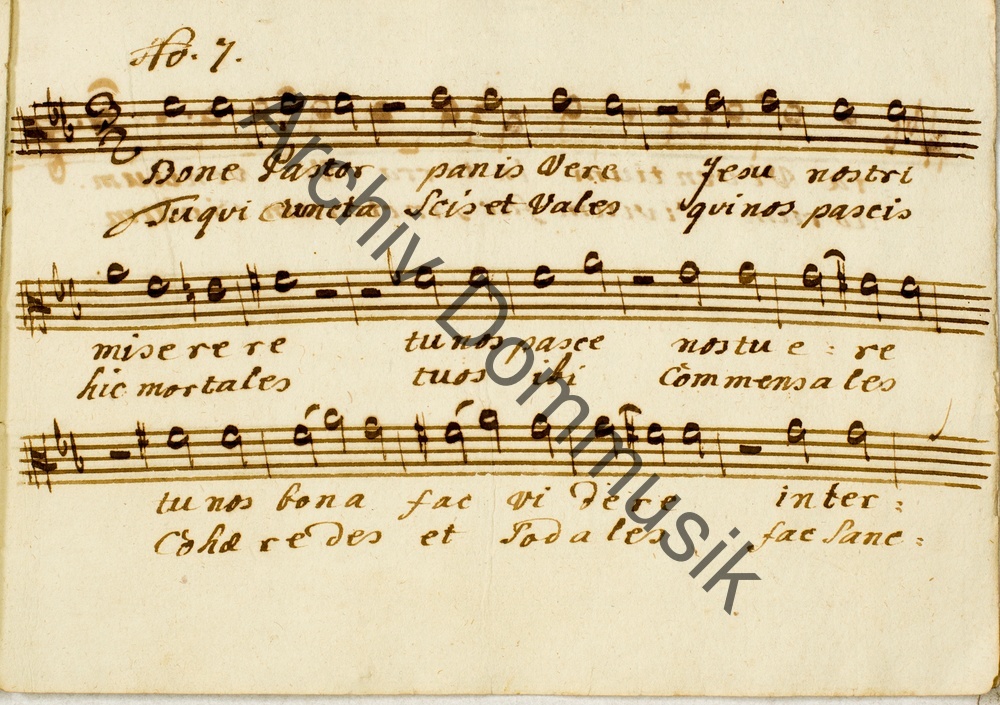 No. 7.
Bone Pastor panis Vere Jesu nostri
Tu qui cuncta Scis et Vales qui nos pascis
mise re re tu nos pasce nos tu e : re
hic mortales tuos ibi Commensales
tu nos bona fac vi de re inter :
Cohæ re des et Soda les fac Sanc :
Archiv Dommusik